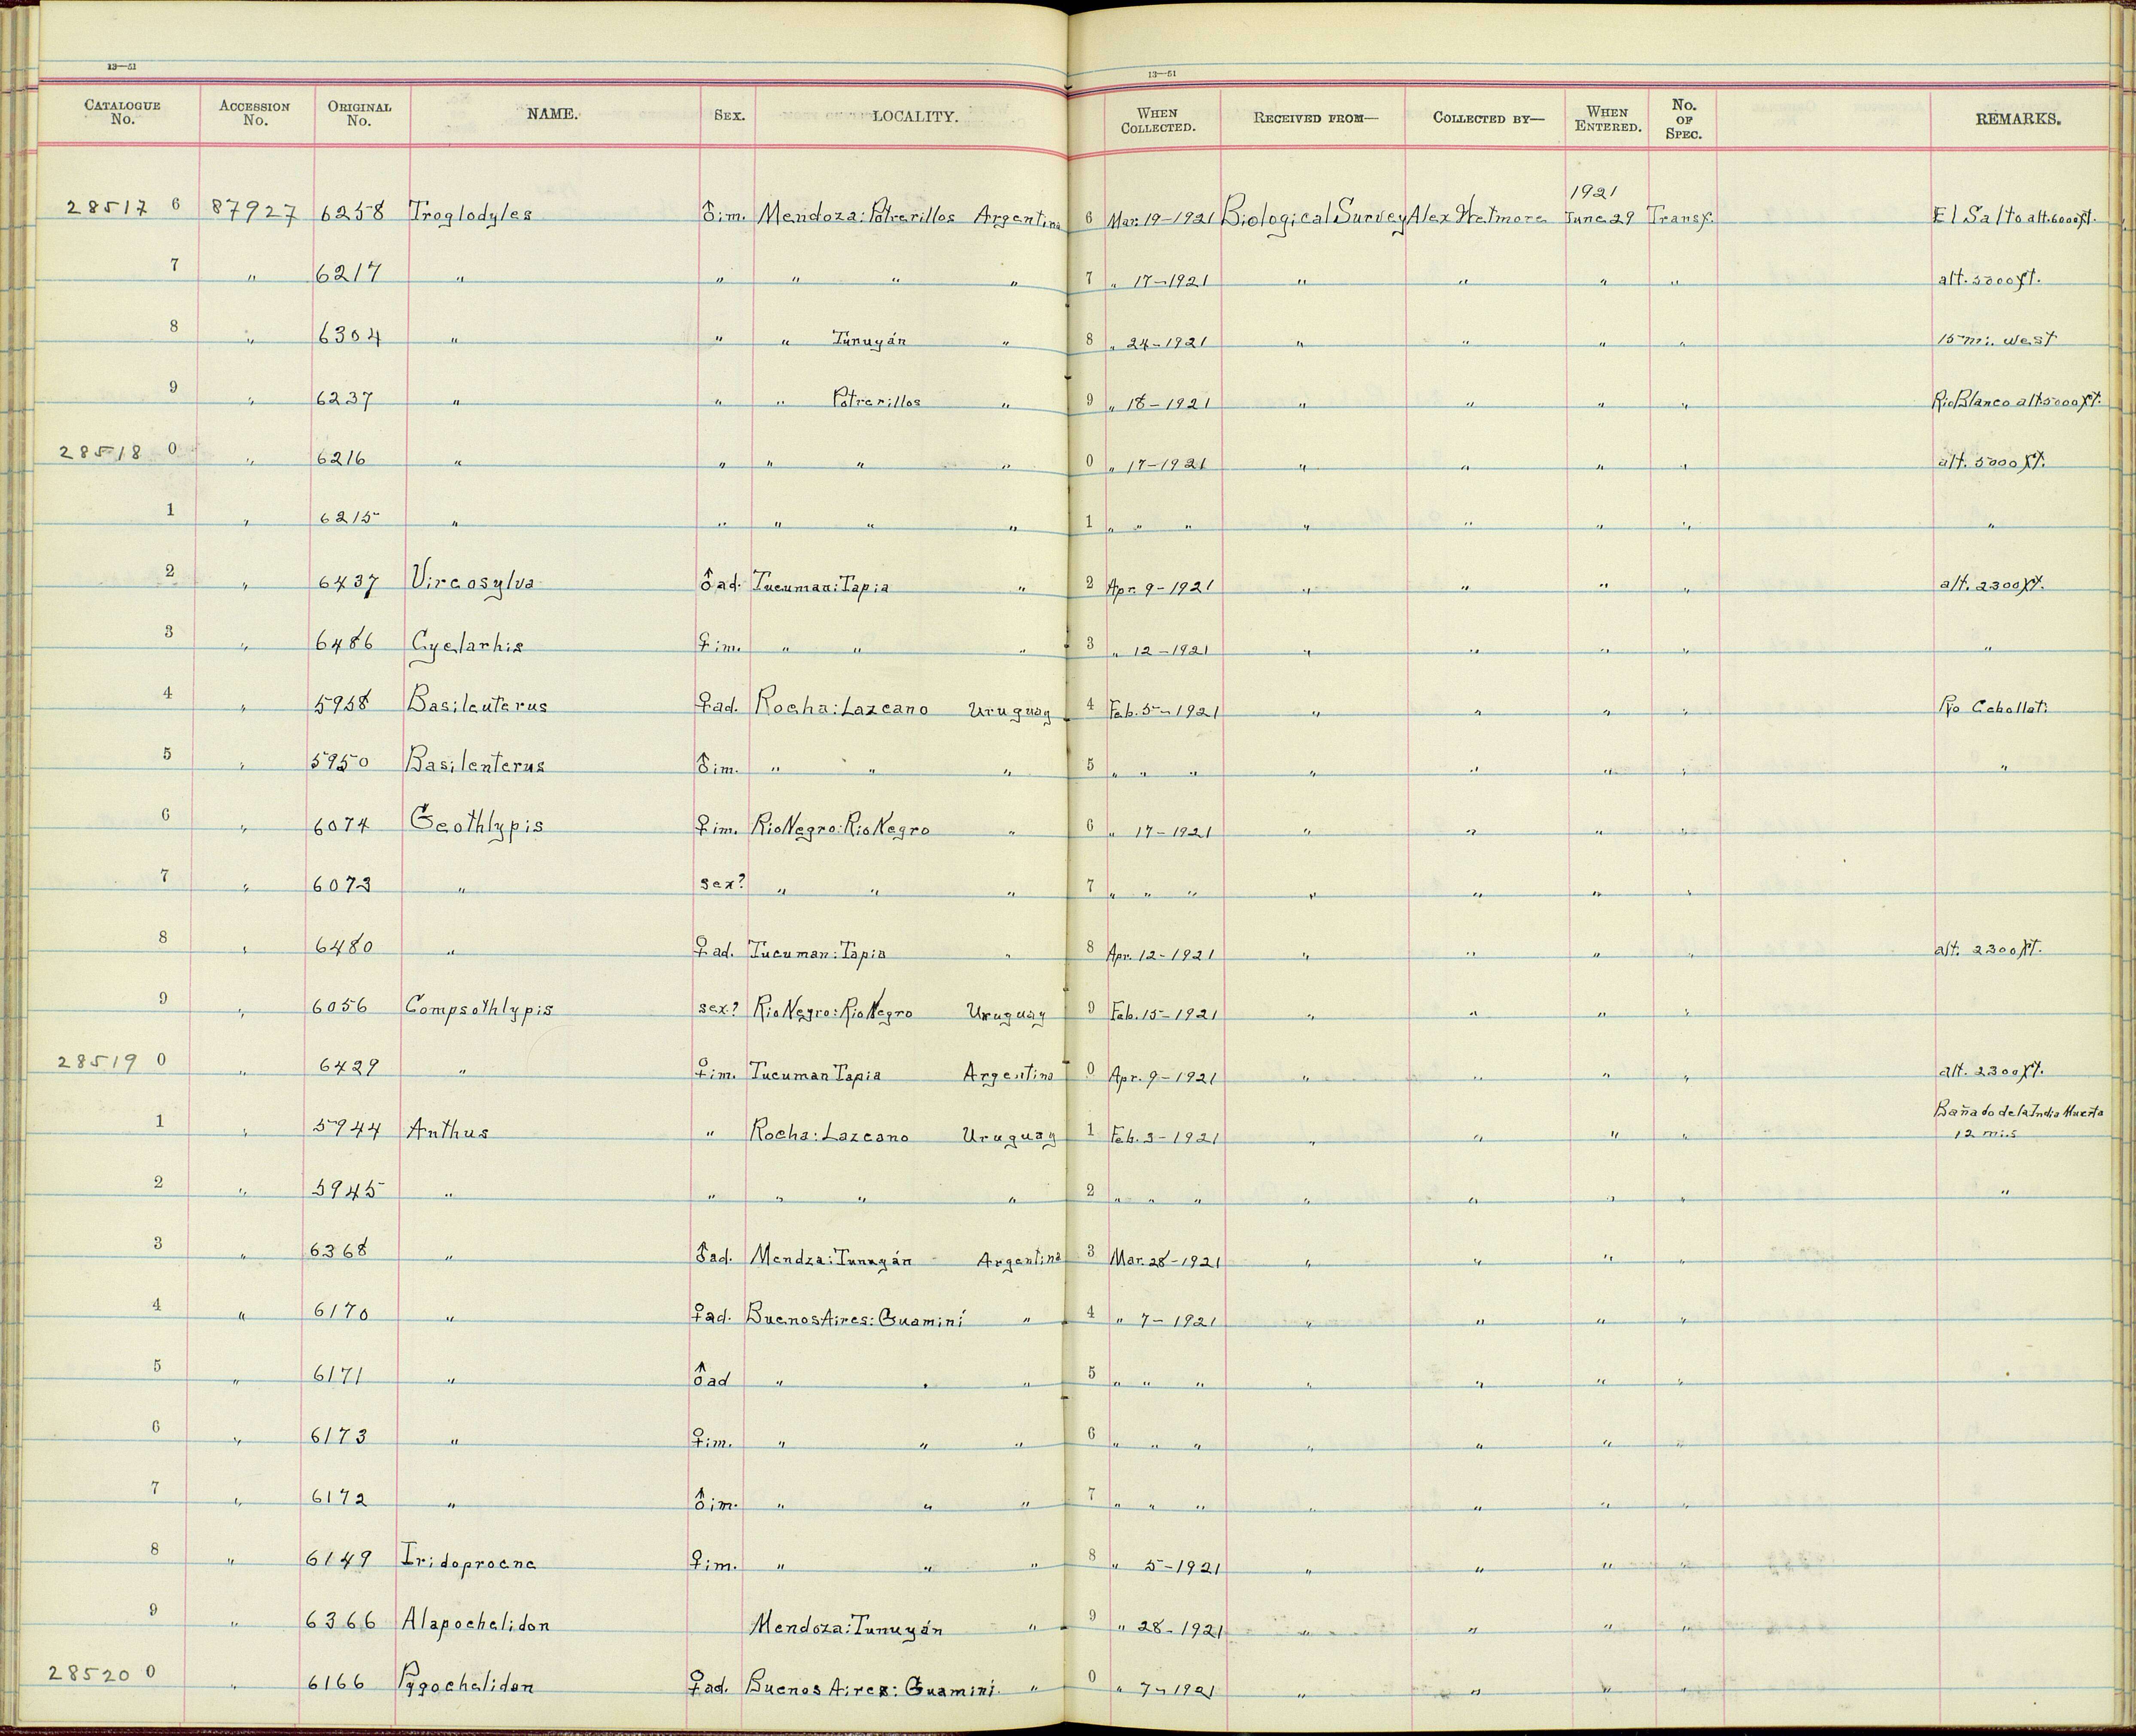 13—51
13—51
CATALOGUE No. ACCESSION No. ORIGINAL No. NAME. SEX. LOCALITY. WHEN COLLECTED. RECEIVED FROM— COLLECTED BY— WHEN ENTERED. No. OF SPEC. REMARKS.
1921
28517 6 87927 6258 Troglodytes ♂im. Mendoza: Potrerillos Argentina 6 Mar. 19-1921 Biological Survey Alex Wetmore June 29 Transf. El Salto alt. 6000 ft.
7 " 6217 " " " " " 7 " 17-1921 " " " " alt. 5000 ft.
8 " 6304 " " " Tunuyán " 8 " 24-1921 " " " " 15 mi. west
9 " 6237 " " " Potrerillos " 9 " 18-1921 " " " " Rio Blanco alt. 5000 ft.
28518 0 " 6216 " " " " " 0 " 17-1921 " " " " alt. 5000 ft.
1 " 6215 " " " " " 1 " " " " " " " "
2 " 6437 Vireosylva ♂ad. Tucuman: Tapia " 2 Apr. 9-1921 " " " " alt. 2300 ft.
3 " 6486 Cyclarhis ♀im. " " " 3 " 12-1921 " " " " "
4 " 5958 Basileuterus ♀ad. Rocha: Lazcano Uruguay 4 Feb. 5-1921 " " " " Rio Cebollati
5 " 5950 Basileuterus ♂im. " " " 5 " " " " " " " "
6 " 6074 Geothlypis ♀im. Rio Negro: Rio Negro " 6 " 17-1921 " " " "
7 " 6073 " sex? " " " 7 " " " " " " "
8 " 6480 " ♀ad. Tucuman: Tapia " 8 Apr. 12-1921 " " " " alt. 2300 ft.
9 " 6056 Compsothlypis sex? Rio Negro: Rio Negro Uruguay 9 Feb. 15-1921 " " " "
28519 0 " 6429 " ♀im. Tucuman Tapia Argentina 0 Apr. 9-1921 " " " " alt. 2300 ft.
1 " 5944 Anthus " Rocha: Lazcano Uruguay 1 Feb. 3-1921 " " " " Bañado de la India Muerta
12 mi. s
2 " 5945 " " " " " 2 " " " " " " " "
3 " 6368 " ♂ad. Mendza: Tunuyán Argentina 3 Mar. 28-1921 " " " "
4 " 6170 " ♀ad. Buenos Aires: Guamini " 4 " 7-1921 " " " "
5 " 6171 " ♂ad " " " 5 " " " " " " "
6 " 6173 " ♀im. " " " 6 " " " " " " "
7 " 6172 " ♂im. " " " 7 " " " " " " "
8 " 6149 Iridoprocne ♀im. " " " 8 " 5-1921 " " " "
9 " 6366 Alapochelidon Mendoza: Tunuyán " 9 " 28-1921 " " " "
28520 0 " 6166 Pygochelidon ♀ad. Buenos Aires: Guamini " 0 " 7-1921 " " " "